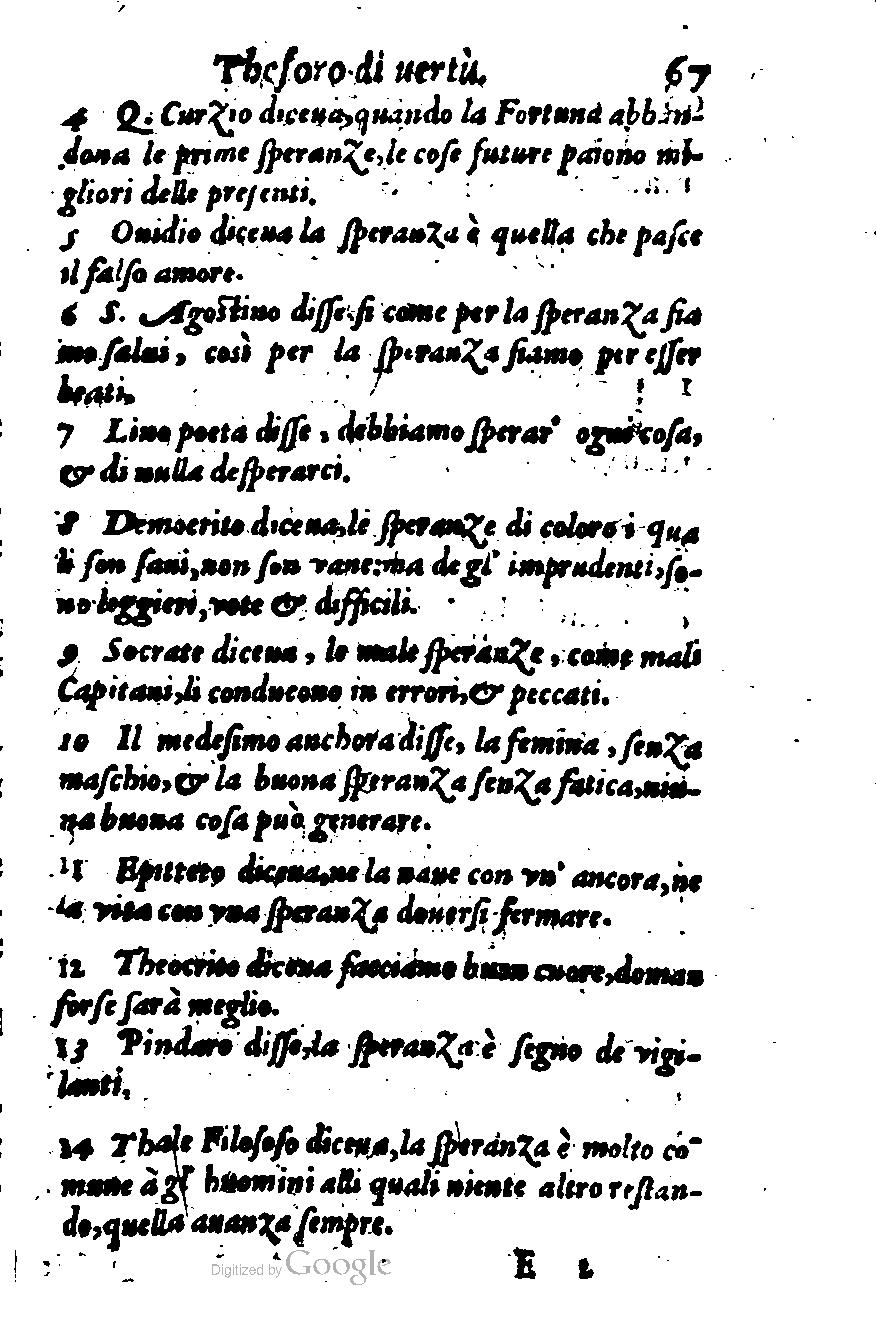 Thesoro di uertù. 67
4 Q. Curzio diceua, quando la Fortuna abban-
dona le prime speranze, le cose future paiono mi-
gliori delle presenti.
5 Ouidio diceua la speranza è quella che pasce
il falso amore.
6 S. Agostino disse, si come per la speranza sia
mo salui, così per la speranza siamo per esser
beati.
7 Lino poeta disse, debbiamo sperar' ogni cosa,
& di nulla desperarci.
8 Democrito diceua, le speranze di coloro i qua
li son saui, non son vane: ma de gl' imprudenti, so-
no leggieri, vote & difficili.
9 Socrate diceua, le male speranze, come mali
Capitani, li conducono in errori, & peccati.
10 Il medesimo anchora disse, la femina, senza
maschio, & la buona speranza senza fatica, niu-
na buona cosa può generare.
11 Epitteto diceua, ne la naue con vn' ancora, ne
la vita con vna speranza douersi fermare.
12 Theocrito diceua facciamo buon cuore, doman
forse sarà meglio.
13 Pindaro disse, la speranza è segno de vigi-
lanti.
14 Thale Filosofo diceua, la speranza è molto co-
mune à gl' huomini alli quali niente altro restan-
do, quella auanza sempre.
E 2
Digitized by Google